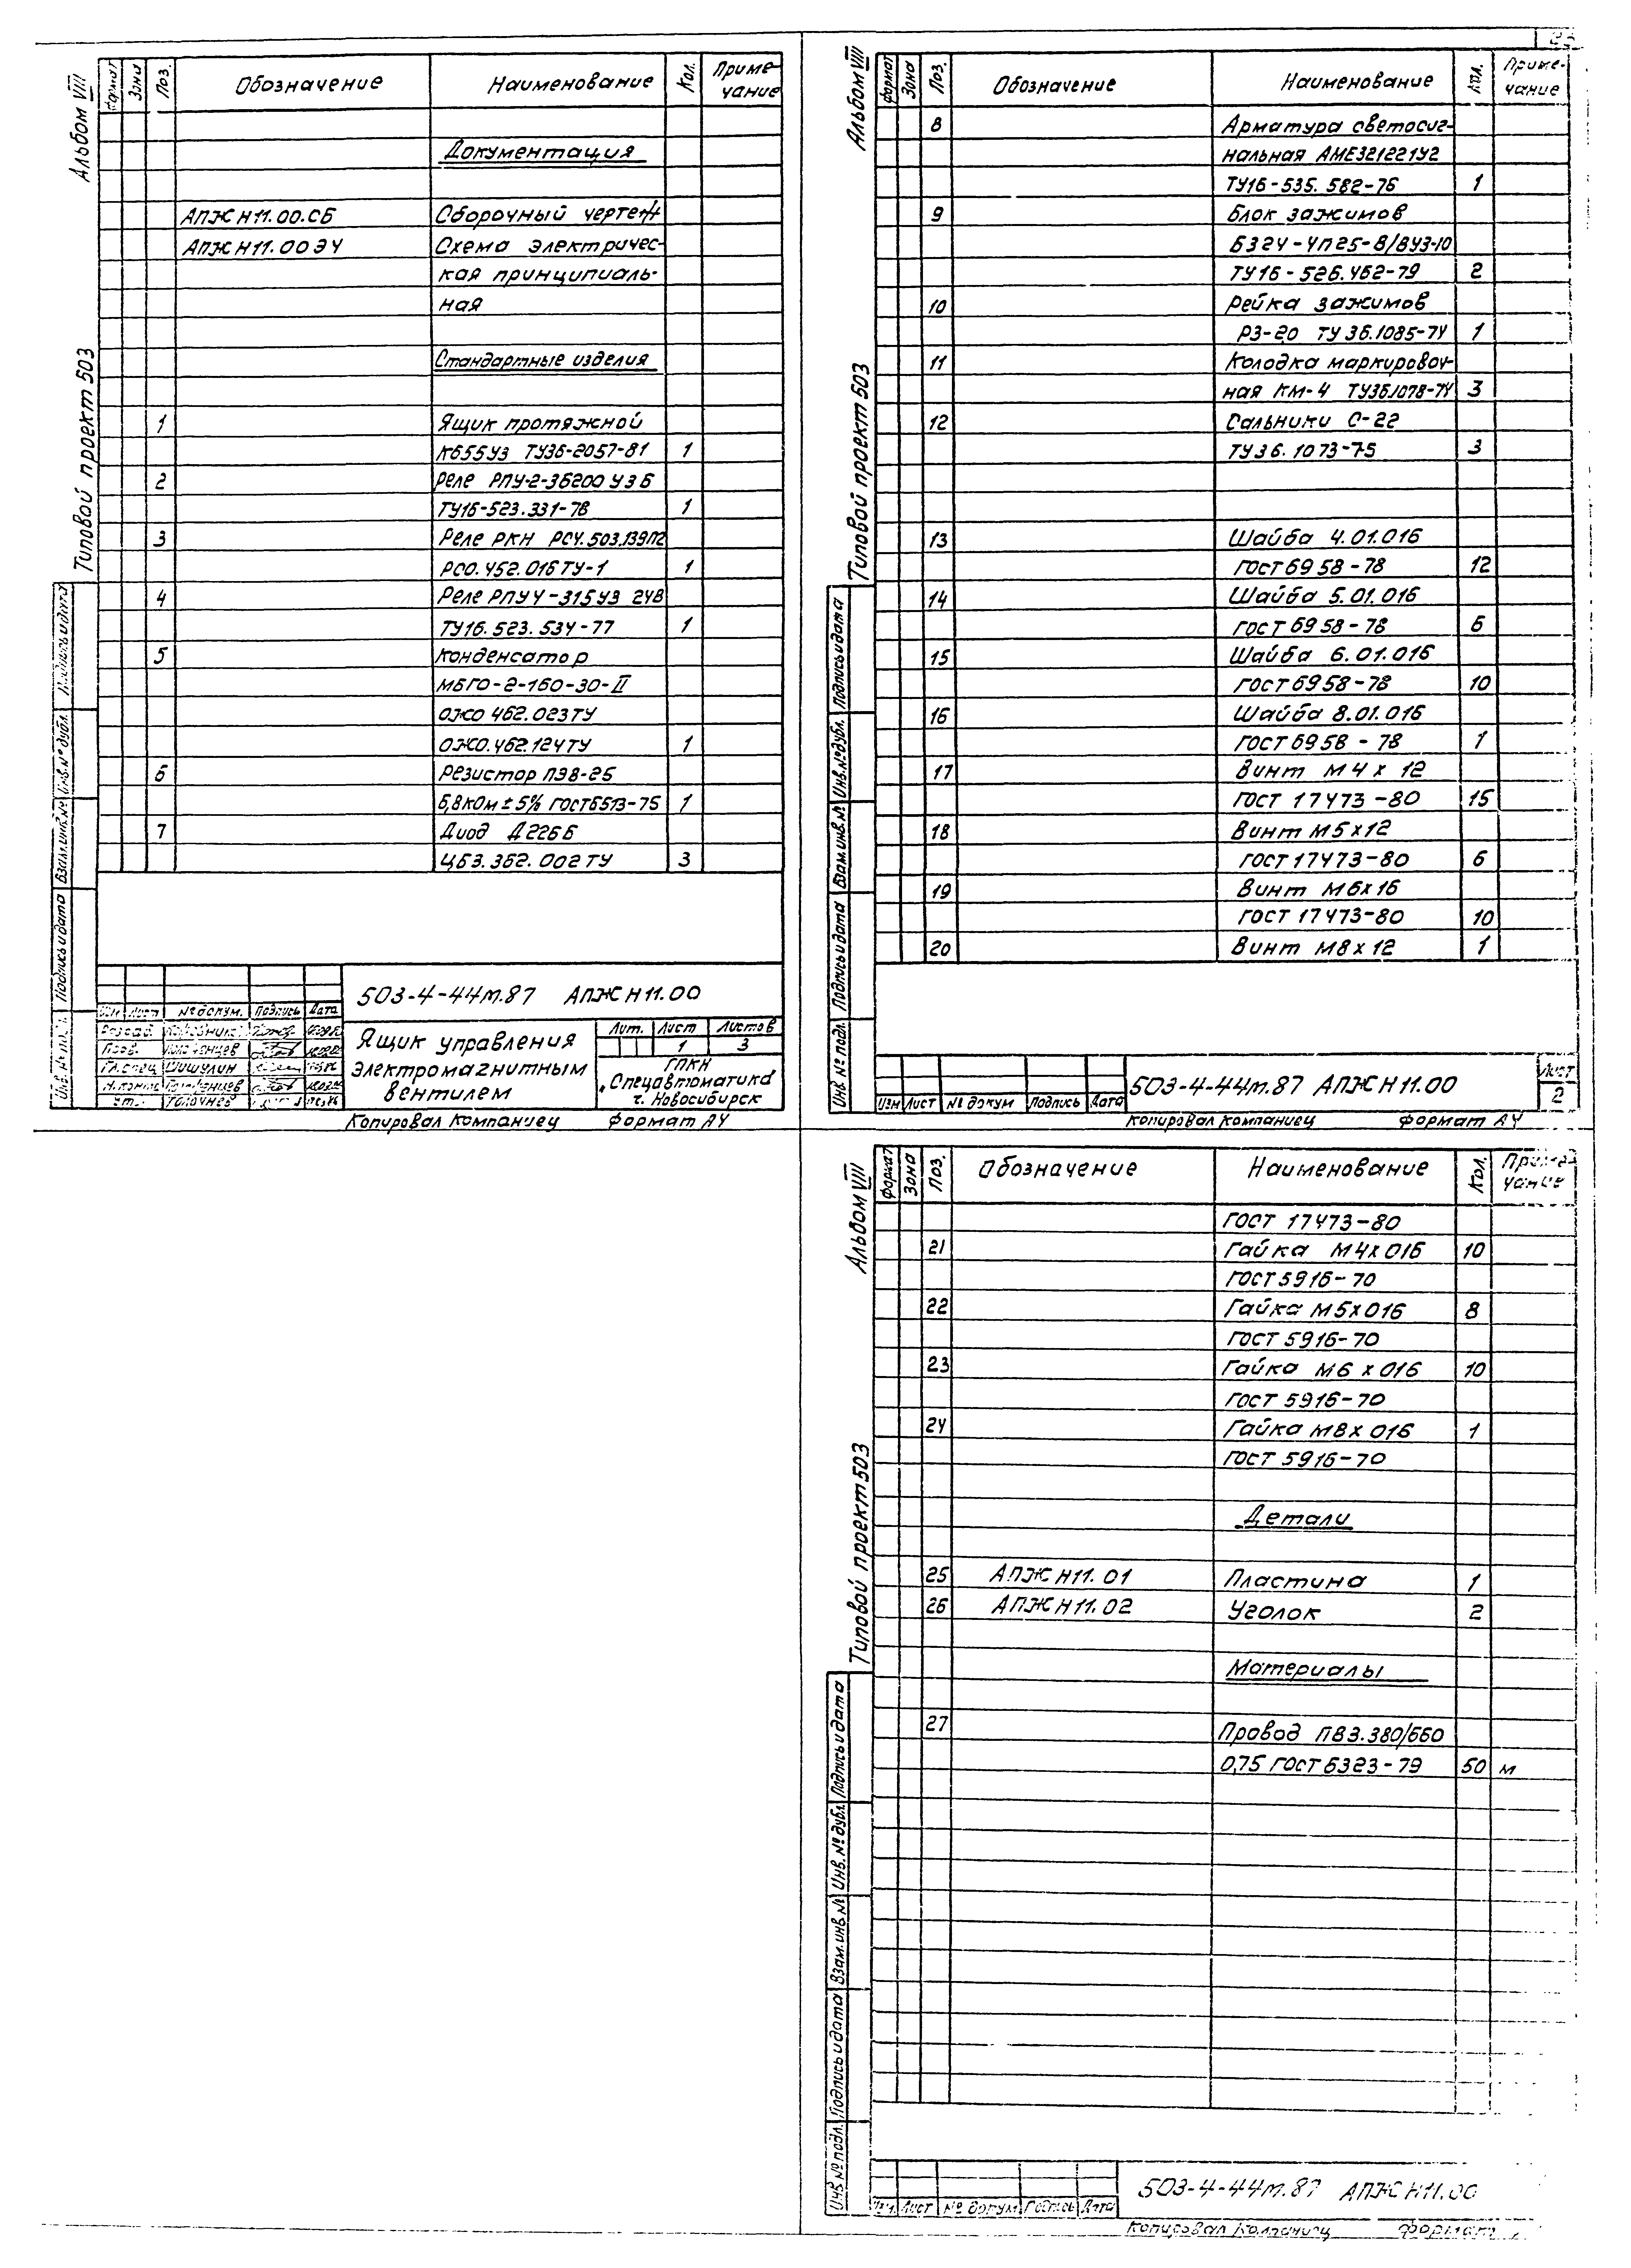 Альбом VIII
Типовой проект 503
Формат Зона Поз. Обозначение Наименование Кол. Примечание
Документация
АПЖ Н11.00.СБ Сборочный чертеж
АПЖ Н11.00 Э4 Схема электричес-
кая принципиаль-
ная
Стандартные изделия
1 Ящик протяжной
К655У3 ТУ36-2057-81 1
2 Реле РПУ-2-36200 У3Б
ТУ16-523.331-78 1
3 Реле РКН РС4.503.139П2
РС0.452.016ТУ-1 1
4 Реле РПУ4-315У3 24В
ТУ16.523.534-77 1
5 Конденсатор
МБГО-2-160-30-II
ОЖО 462.023ТУ
ОЖО.462.124ТУ 1
6 Резистор ПЭВ-25
6,8 кОм ± 5% ГОСТ6513-75 1
7 Диод Д226Б
ЩБ3.362.002 ТУ 3
Подпись и дата
Инв.№ дубл.
Взам.инв.№
Подпись и дата
503-4-44м.87 АПЖ Н11.00
Изм Лист № докум. Подпись Дата
Разраб.
Пров.
Гл.спец Шишулин
Ящик управления
электромагнитным
вентилем
Лит. Лист Листов
1 3
ГПКИ
"Спецавтоматика
г. Новосибирск
Копировал Компаниец Формат А4
Альбом VIII
Типовой проект 503
Формат Зона Поз. Обозначение Наименование Кол. Приме-
чание
8 Арматура светосиг-
нальная АМЕ321221У2
ТУ16-535.582-76 1
9 Блок зажимов
БЗ24-4П25-В/ВУ3-10
ТУ16-526.462-79 2
10 Рейка зажимов
РЗ-20 ТУ 36.1085-74 1
11 Колодка маркировоч-
ная КМ-4 ТУ36.1078-74 3
12 Сальники С-22
ТУ36.1073-75 3
13 Шайба 4.01.016
ГОСТ 6958-78 12
14 Шайба 5.01.016
ГОСТ 6958-78 6
15 Шайба 6.01.016
ГОСТ 6958-78 10
16 Шайба 8.01.016
ГОСТ 6958-78 1
17 Винт М4х12
ГОСТ 17473-80 15
18 Винт М5х12
ГОСТ 17473-80 6
19 Винт М6х16
ГОСТ 17473-80 10
20 Винт М8х12 1
Подпись и дата
Инв.№ дубл.
Взам.инв.№
Подпись и дата
Инв.№ подл.
Изм Лист № докум Подпись Дата
503-4-44м.87 АПЖ Н11.00
Лист
2
Копировал Компаниец Формат А4
Альбом VIII
Типовой проект 503
Формат Зона Поз. Обозначение Наименование Кол. Приме-
чание
ГОСТ 17473-80
21 Гайка М4х016 10
ГОСТ 5916-70
22 Гайка М5х016 8
ГОСТ 5916-70
23 Гайка М6х016 10
ГОСТ 5916-70
24 Гайка М8х016 1
ГОСТ 5916-70
Детали
25 АПЖ Н11.01 Пластина 1
26 АПЖ Н11.02 Уголок 2
Материалы
27 Провод ПВ3.380/660
0,75 ГОСТ 6323-79 50 м
Подпись и дата
Инв.№ дубл.
Взам.инв.№
Подпись и дата
Инв.№ подл.
Изм. Лист № докум Подпись Дата
503-4-44м.87 АПЖ Н11.00
Копировал Компаниец Формат